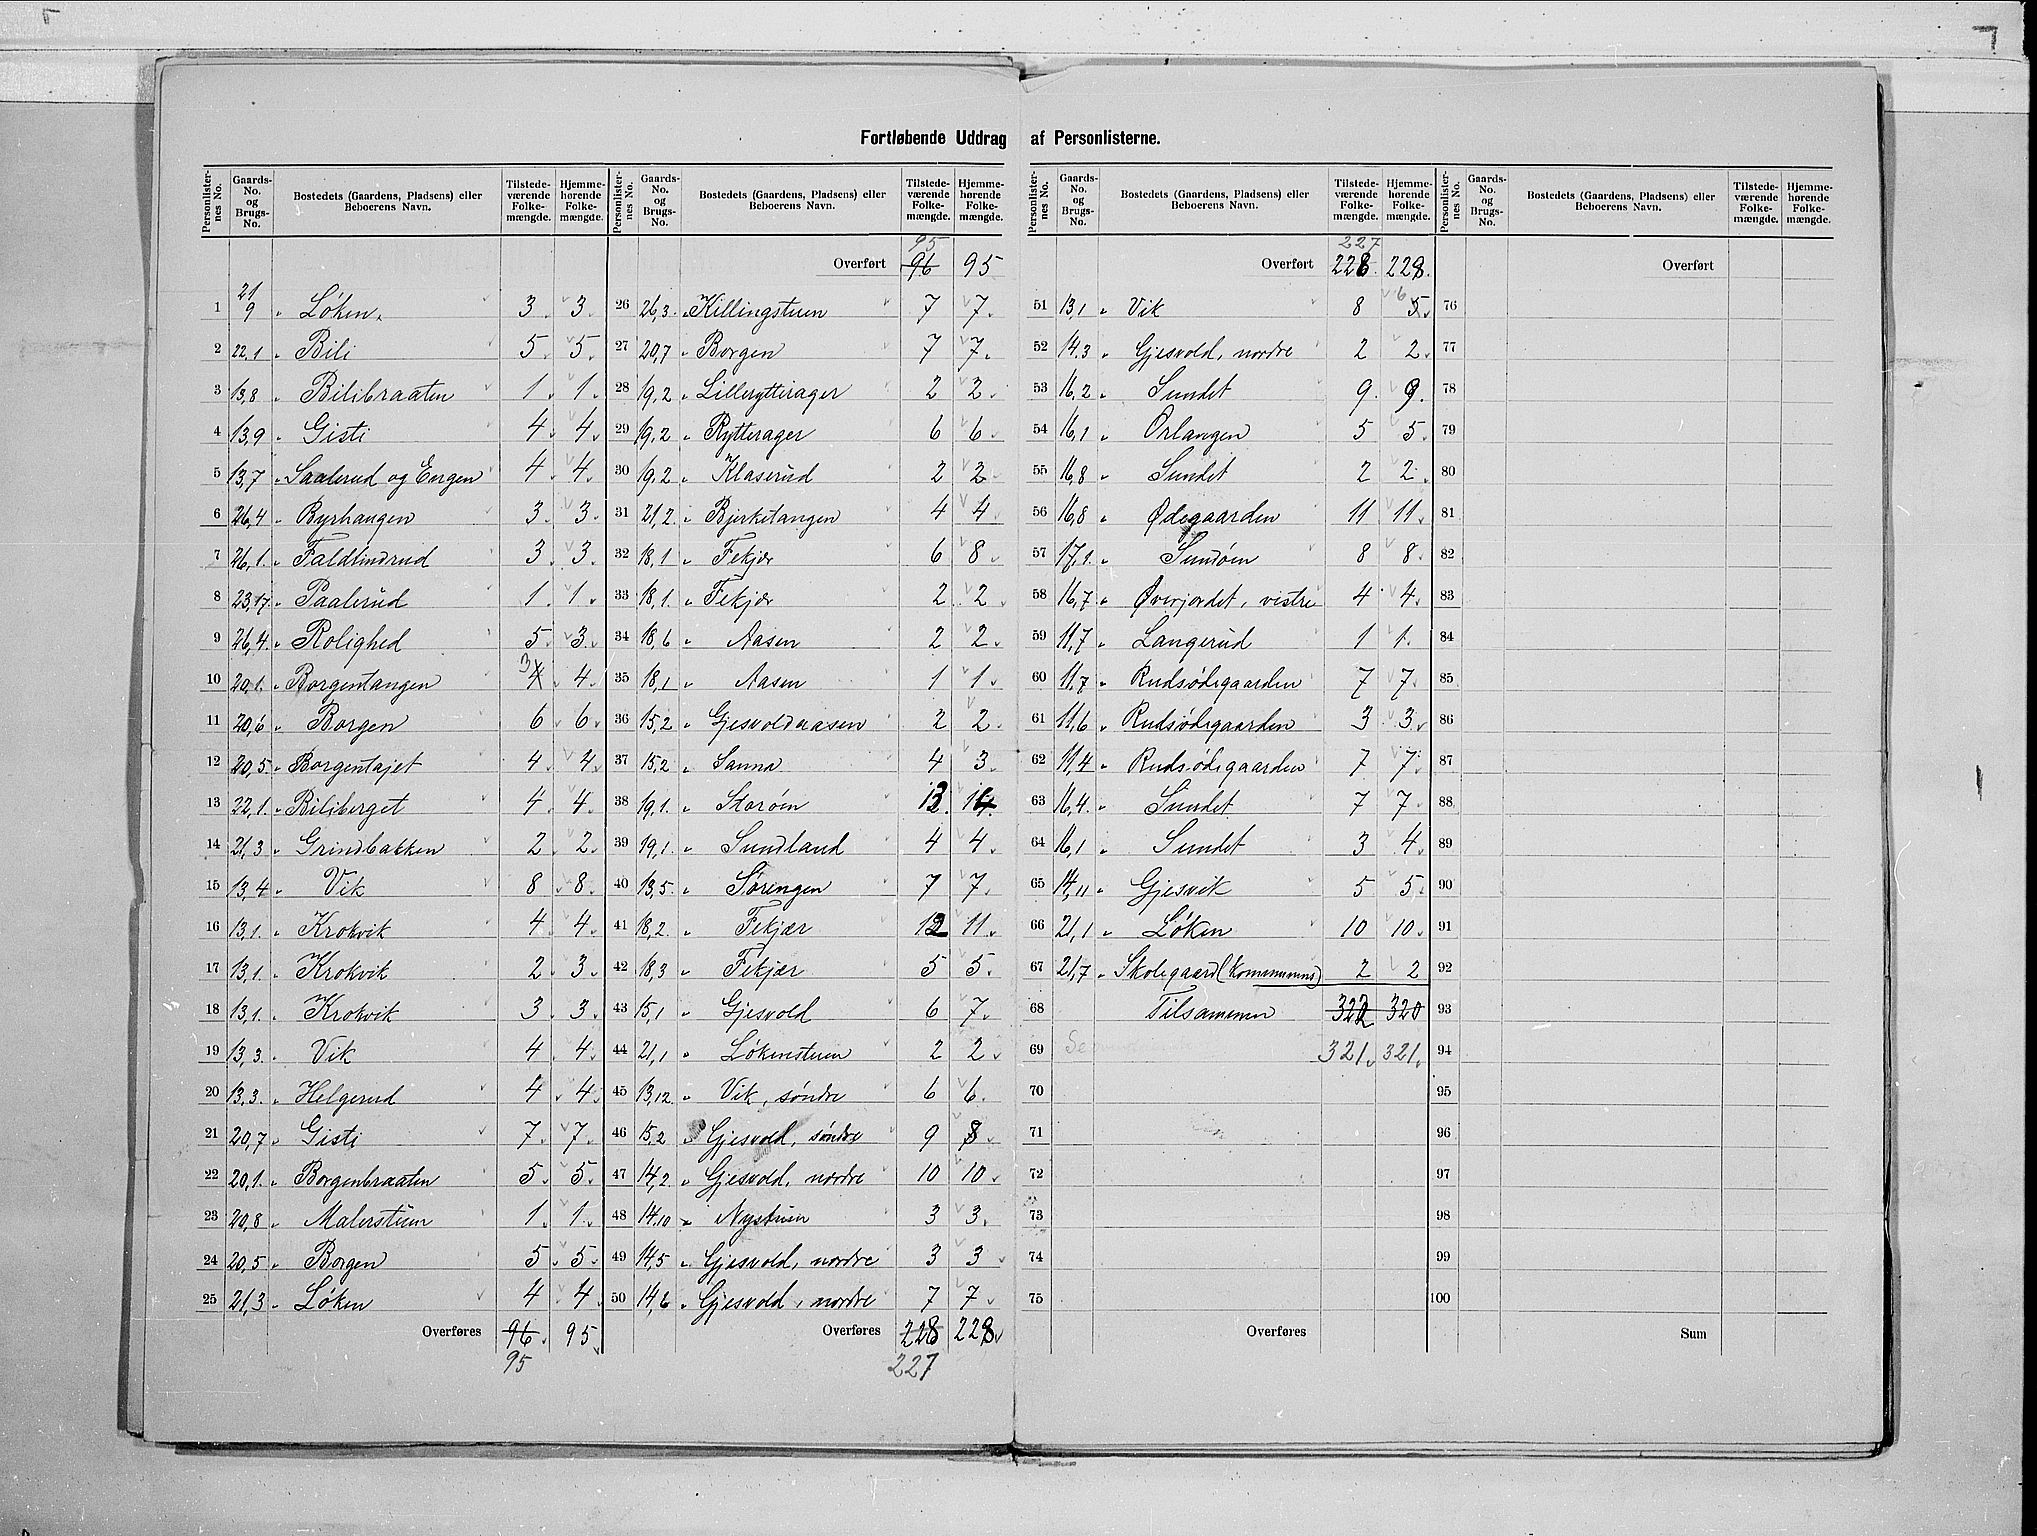 Fortløbende Uddrag af Personlisterne.
Personlisternes No. Gaards-No. og Brugs-No. Bostedets (Gaardens, Pladsens) eller Beboerens Navn. Tilstedeværende Folkemængde. Hjemmehørende Folkemængde.
1 21/9 " Løken. 3. 3.
2 22,1 " Bili 5. 5.
3 13,8 " Bilibraaten 1. 1.
4 13,9 " Gisti 4. 4.
5 13,7 " Saalerud og Engen 4. 4.
6 26,4 " Byrhaugen 3. 3.
7 26,1. " Faldlindrud 3. 3.
8 23,17. " Paalerud 1. 1.
9 26,4. " Rolighed 5. 3.
10 20,1. " Borgentangen 3 4. 4.
11 20,6 " Borgen 6. 6.
12 20,5. " Borgentajet 4. 4.
13 22,1. " Biliberget 4. 4.
14 21,3 " Grindbakken 2. 2.
15 13,4. " Vik 8. 8.
16 13,1. " Krokvik 4. 4.
17 13,1. " Krokvik 2. 3.
18 13,1. " Krokvik 3. 3.
19 13,3. " Vik 4. 4.
20 13,3. " Helgerud 4. 4.
21 20,7. " Gisti 7. 7.
22 20,1. " Borgenbraaten 5. 5.
23 20,8 " Malerstuen 1. 1.
24 20,5. " Borgen 5. 5.
25 21,3 " Løken 4. 4.
Overføres 96. 95
95
Personlisternes No. Gaards-No. og Brugs-No. Bostedets (Gaardens, Pladsens) eller Beboerens Navn. Tilstedeværende Folkemængde. Hjemmehørende Folkemængde.
95
Overført 96 95
26 26,3. " Killingstuen 7 7.
27 20,7 " Borgen 7 7.
28 19,2 " Lillerytterager 2 2.
29 19,2 " Rytterager 6 6.
30 19,2 " Klaserud 2 2.
31 21,2. " Bjerketangen 4 4.
32 18,1 " Fekjær 6 8.
33 18,1. " Fekjær 2 2.
34 18,6 " Aasen 2 2.
35 18,1 " Aasen 1 1.
36 15,2. " Gjesvoldaasen 2 2.
37 15,2 " Sanna 4 3.
38 19,1. " Storøen 12. 14.
39 19,1. " Sundland 4 4.
40 13,5. " Sørengen 7 7.
41 18,2. " Fekjær 12 11.
42 18,3 " Fekjær 5 5.
43 15,1 " Gjesvold 6 7.
44 21,1 " Løkenstuen 2 2.
45 13,12. " Vik, søndre 6 6.
46 15,2 " Gjesvold, søndre 9 8.
47 14,2 " Gjesvold, nordre 10 10.
48 14,10 " Nystuen 3 3.
49 14,5 " Gjesvold, nordre 3 3.
50 14,6 " Gjesvold, nordre 7 7.
Overføres 228 228
227
Personlisternes No. Gaards-No. og Brugs-No. Bostedets (Gaardens, Pladsens) eller Beboerens Navn. Tilstedeværende Folkemængde. Hjemmehørende Folkemængde.
227
Overført 228. 228.
51 13,1 " Vik 8 6 5.
52 14,3 " Gjesvold, nordre 2 2.
53 16,2 " Sundet 9. 9.
54 16,1 " Orlangen 5 5.
55 16,8 " Sundet 2 2.
56 16,8 " Ødegaarden 11 11.
57 17,1. " Sundøen 8 8.
58 16,7 " Øverjordet, vestre 4 4.
59 11,7 " Langerud 1 1.
60 11,7 " Rudsødegaarden 7 7.
61 11,6 " Rudsødegaarden 3 3.
62 11,4 " Rudsødegaarden 7 7.
63 16,4. " Sundet 7 7.
64 16,1 " Sundet 3 4.
65 14,11 " Gjesvik 5 5.
66 21,1 " Løken 10 10.
67 21,7 " Skolegaard (Kommunens) 2 2
68 Tilsammen 322 320
69 321. 321.
70
71
72
73
74
75
Overføres
Personlisternes No. Gaards-No. og Brugs-No. Bostedets (Gaardens, Pladsens) eller Beboerens Navn. Tilstedeværende Folkemængde. Hjemmehørende Folkemængde.
Overført
76
77
78
79
80
81
82
83
84
85
86
87
88
89
90
91
92
93
94
95
96
97
98
99
100
Sum